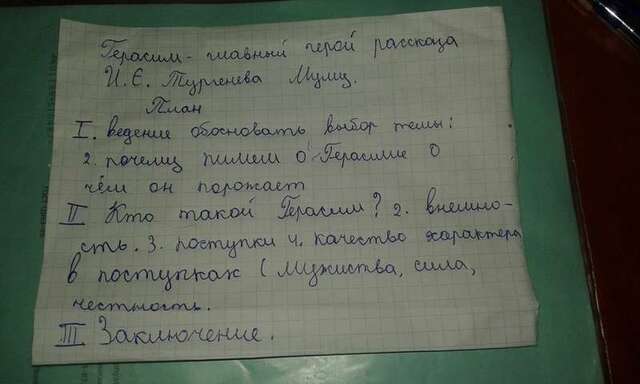 Герасим - главный герой рассказа
И. С. Тургенева Муму.
План
I. ведение обосновать выбор темы:
2. почему пишем о Герасиме О
чём он поражает
II Кто такой Герасим? 2. внешно-
сть. 3. поступки 4. качество характера
в поступках (Мужиства, сила,
честность.
III Заключение.